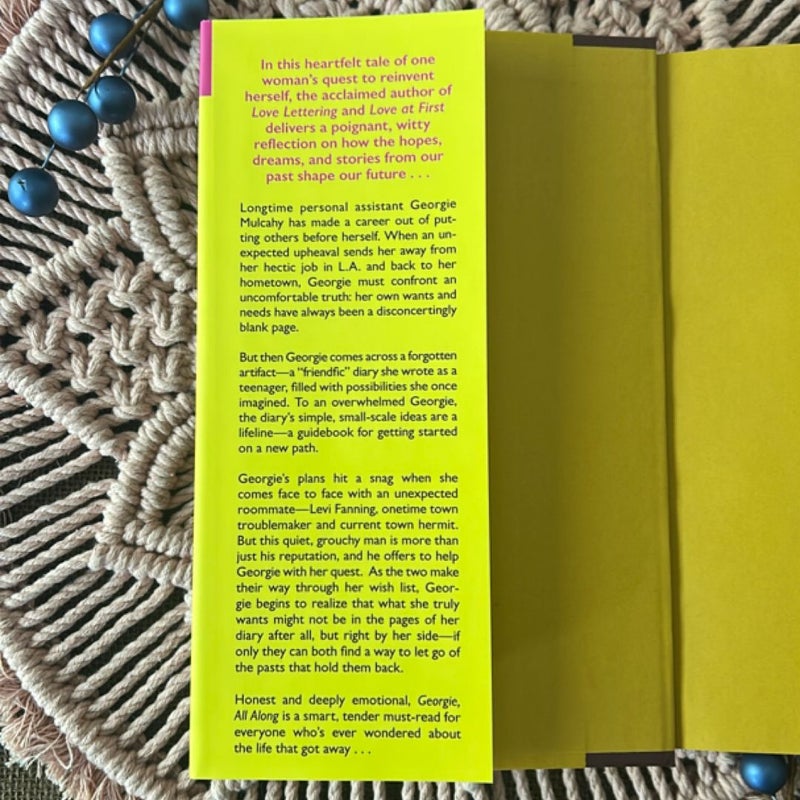 In this heartfelt tale of one
woman's quest to reinvent
herself, the acclaimed author of
Love Lettering and Love at First
delivers a poignant, witty
reflection on how the hopes,
dreams, and stories from our
past shape our future . . .
Longtime personal assistant Georgie
Mulcahy has made a career out of put-
ting others before herself. When an un-
expected upheaval sends her away from
her hectic job in L.A. and back to her
hometown, Georgie must confront an
uncomfortable truth: her own wants and
needs have always been a disconcertingly
blank page.
But then Georgie comes across a forgotten
artifact—a "friendfic" diary she wrote as a
teenager, filled with possibilities she once
imagined. To an overwhelmed Georgie,
the diary's simple, small-scale ideas are a
lifeline—a guidebook for getting started
on a new path.
Georgie's plans hit a snag when she
comes face to face with an unexpected
roommate—Levi Fanning, onetime town
troublemaker and current town hermit.
But this quiet, grouchy man is more than
just his reputation, and he offers to help
Georgie with her quest. As the two make
their way through her wish list, Geor-
gie begins to realize that what she truly
wants might not be in the pages of her
diary after all, but right by her side—if
only they can both find a way to let go of
the pasts that hold them back.
Honest and deeply emotional, Georgie,
All Along is a smart, tender must-read for
everyone who's ever wondered about
the life that got away . . .